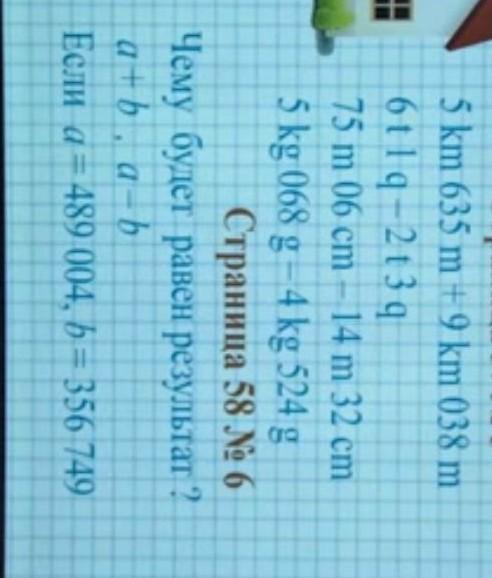 5 km 635 m + 9 km 038 m
6 t 1 q – 2 t 3 q
75 m 06 cm – 14 m 32 cm
5 kg 068 g – 4 kg 524 g
Страница 58 № 6
Чему будет равен результат?
a + b , a – b
Если a = 489 004, b = 356 749